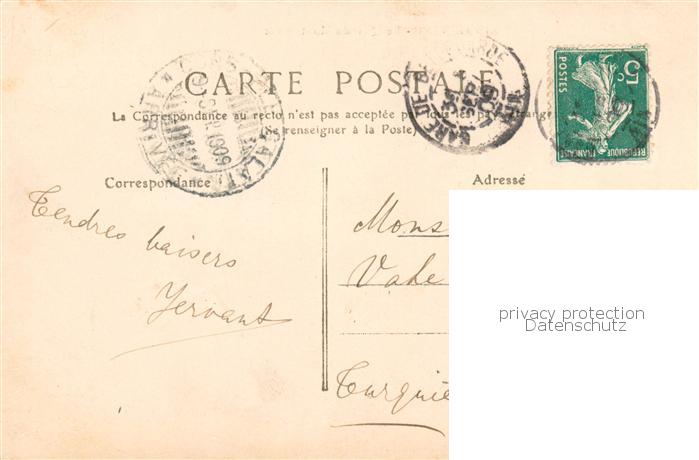 CARTE POSTALE
La Correspondance au recto n'est pas acceptée par tous les pays étrangers
(Se renseigner à la Poste)
5c
POSTES
REPUBLIQUE FRANÇAISE
GALATA
1909
GARE DU
Correspondance
Adresse
Tendres baisers
Yervant
Mons
Vahe
Turquie
privacy protection
Datenschutz